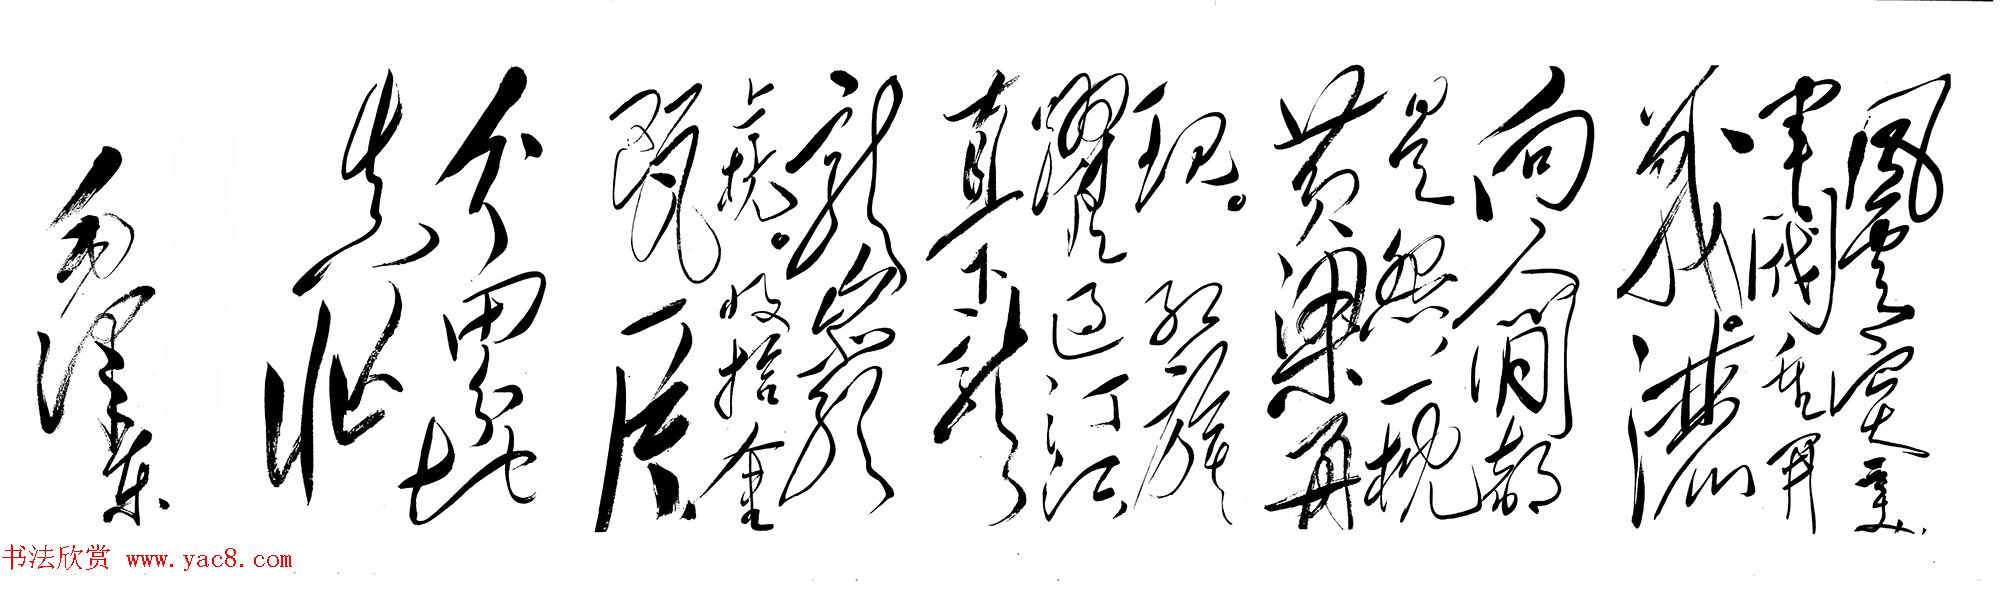 風雲突变,
軍閥重開
战。洒
向人间都
是怨,一枕
黄粱再
现。红旗
躍过汀江,
直下龍
龍巖
上杭。收拾金
甌一片,
分田分地
真忙
毛澤东
书法欣赏 www.yac8.com